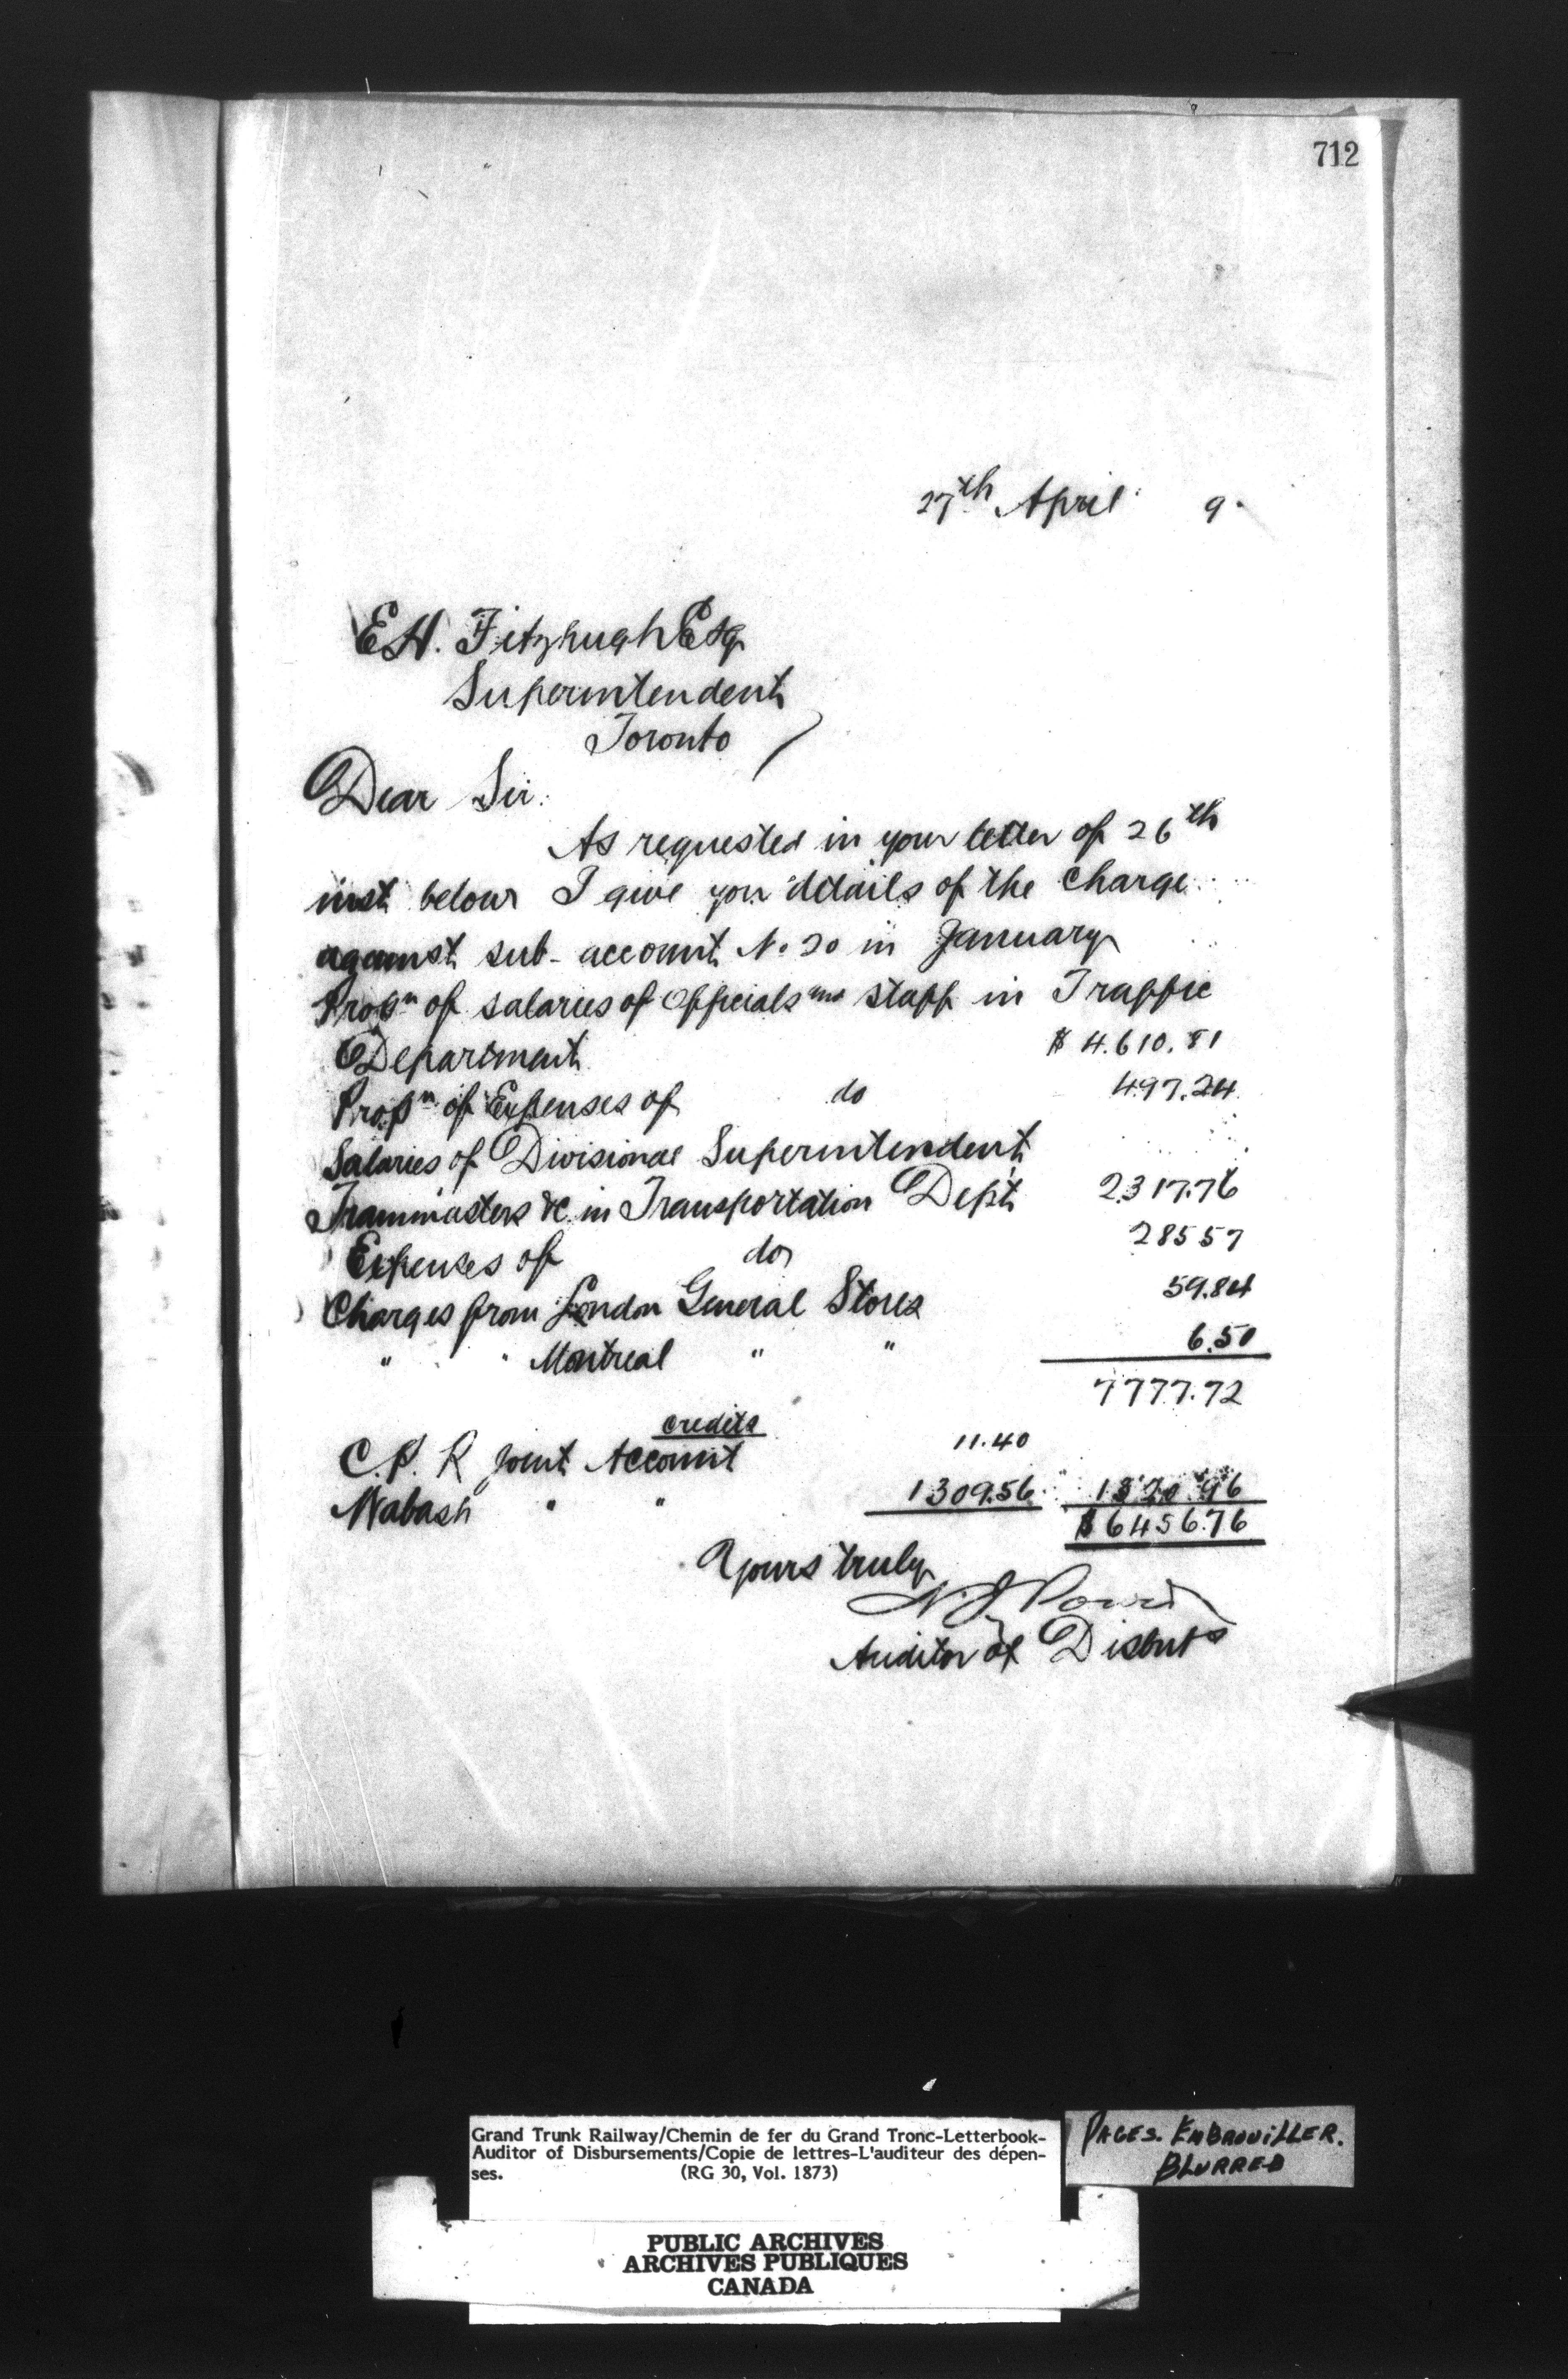 712
27th April 9.
E.H. Fitzhugh Esq
Superintendent
Toronto
Dear Sir.
As requested in your letter of 26th
inst below I give you details of the charge
against sub-account No 20 in January
Propn of salaries of Officials and staff in Traffic
Department $4.610.81
Propn of Expenses of do 497.24
Salaries of Divisional Superintendent
Trainmasters &c. in Transportation Dept 2317.76
Expenses of do 285 57
Charges from London General Stores 59.84
" " Montreal " " 6.50
7777.72
credits
C.P.R Joint Account 11.40
Wabash " " 1309.56 1320.96
$6456.76
Yours truly
Auditor of Disbuts
Grand Trunk Railway/Chemin de fer du Grand Tronc-Letterbook-
Auditor of Disbursements/Copie de lettres-L'auditeur des dépen-
ses. (RG 30, Vol. 1873)
PAGES. EMBROUILLER.
BLURRED
PUBLIC ARCHIVES
ARCHIVES PUBLIQUES
CANADA